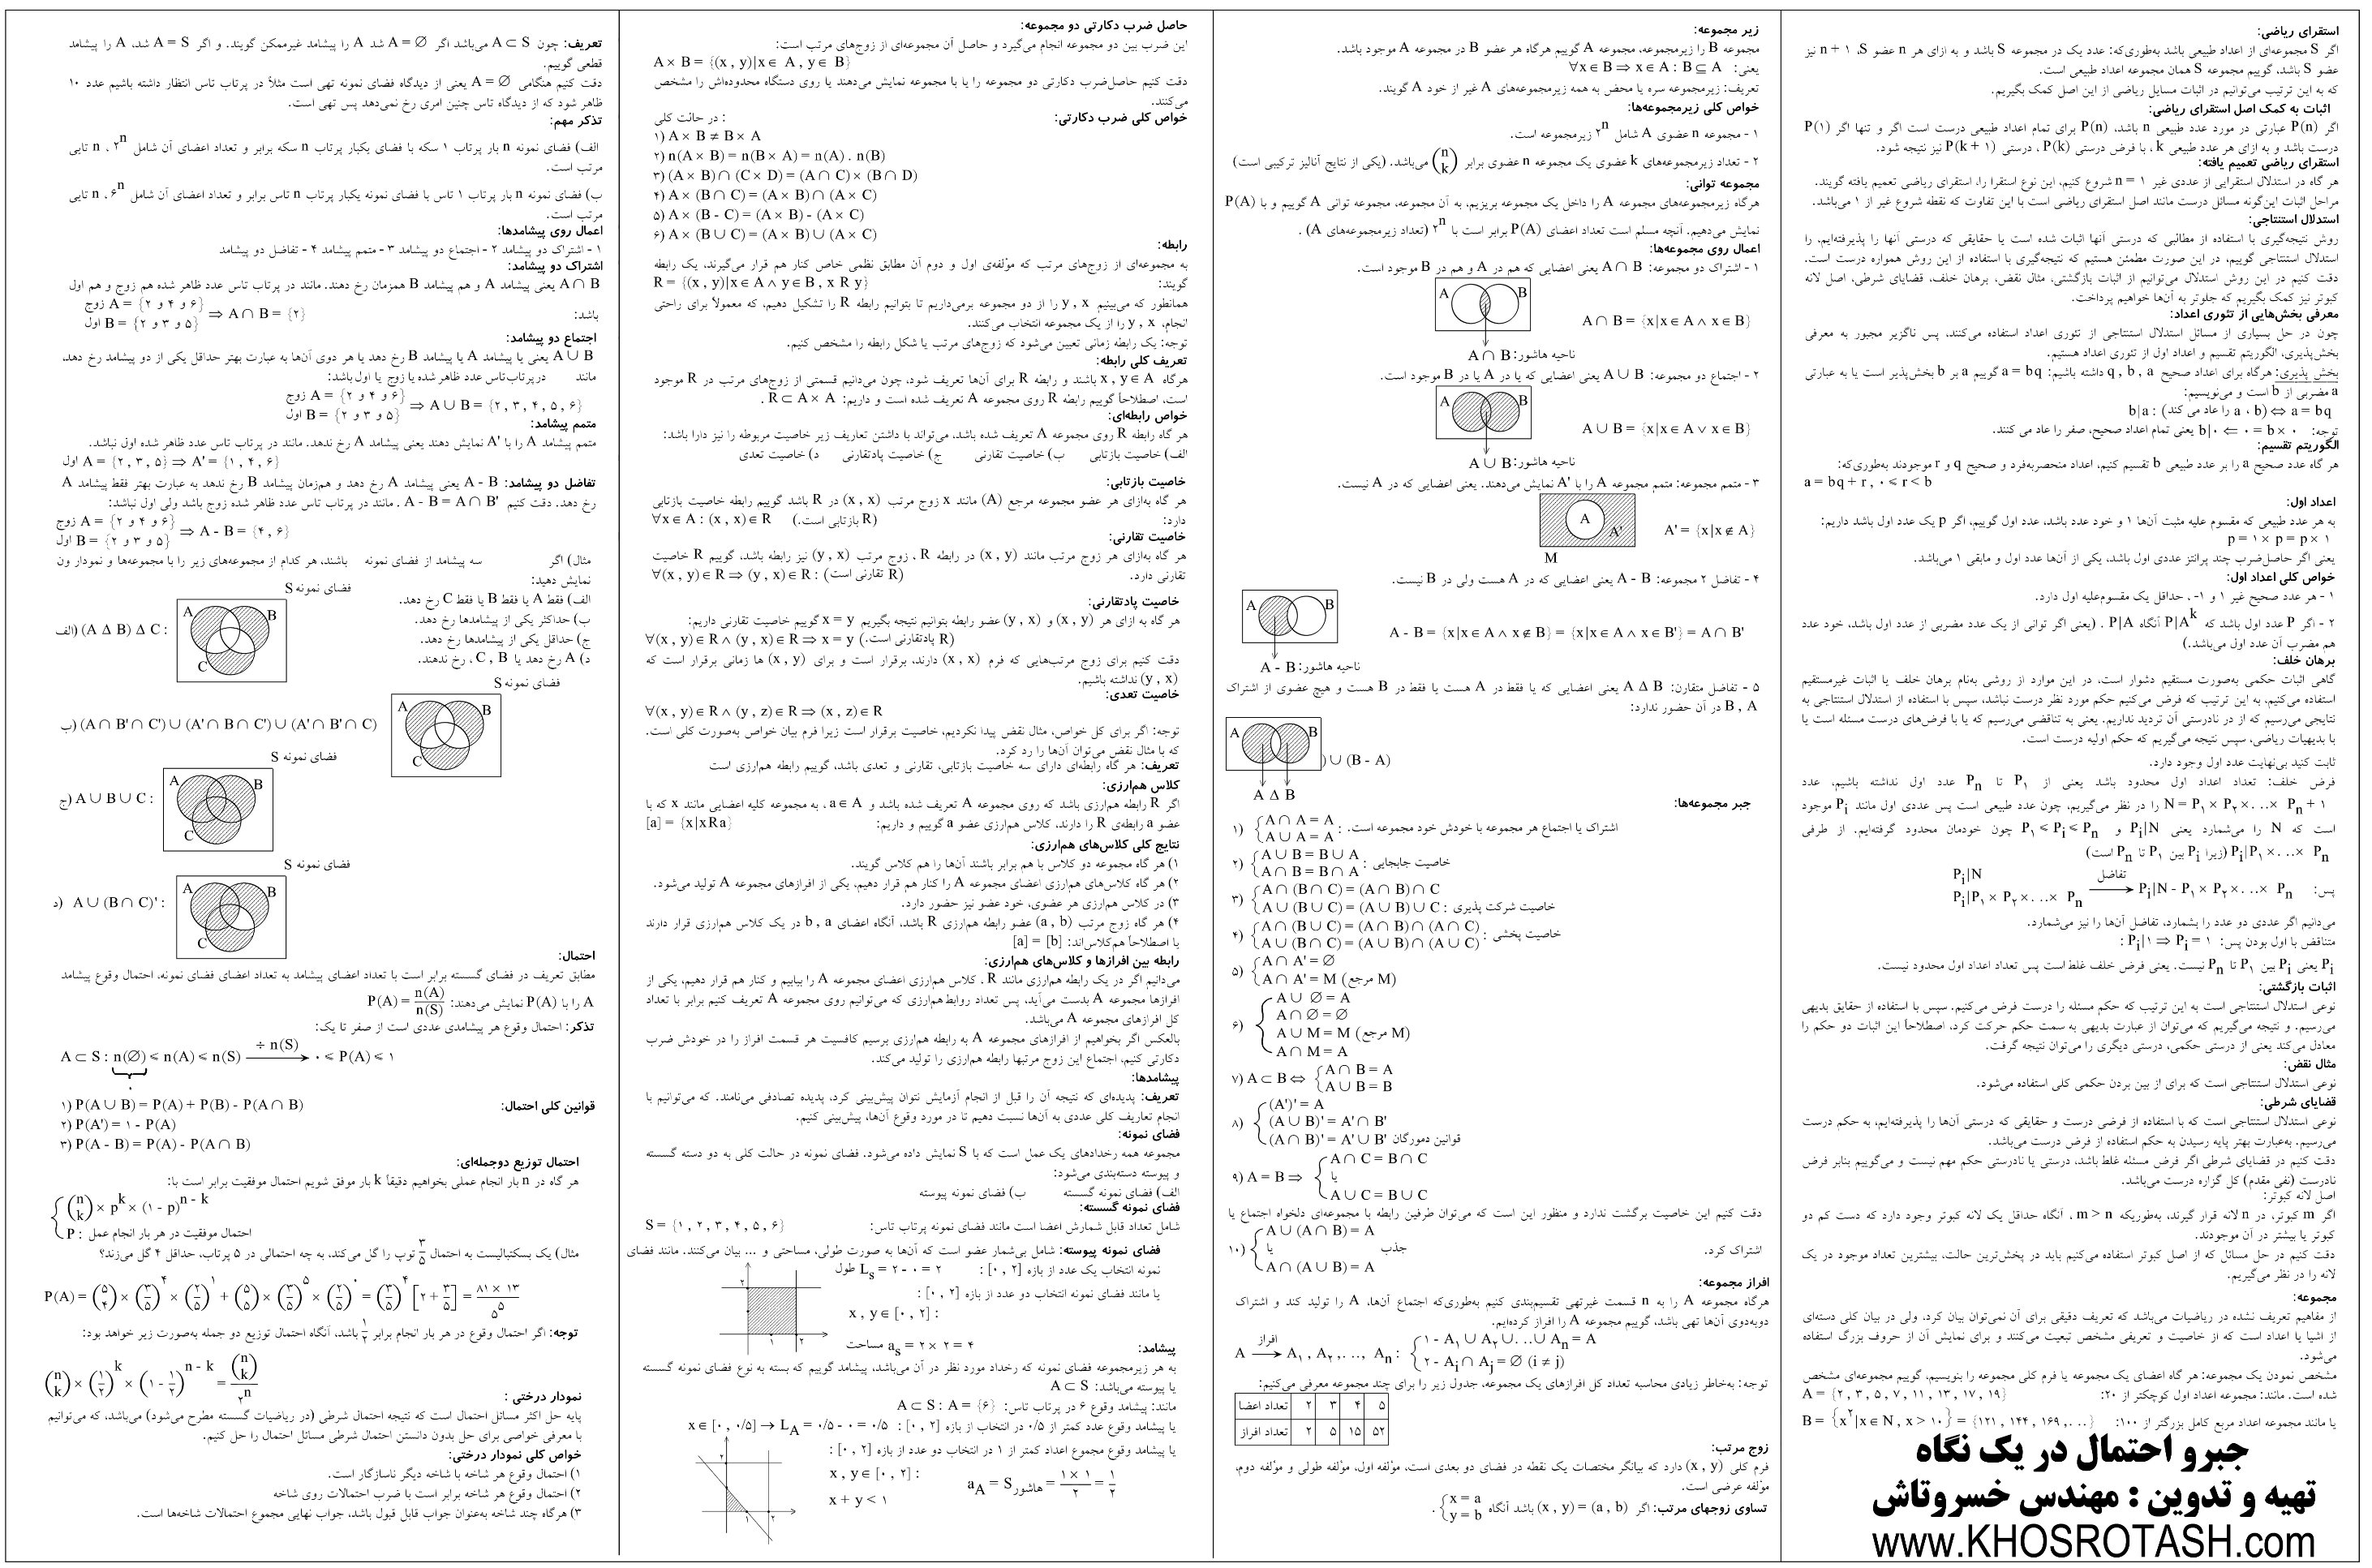 استقرای ریاضی:
اگر S مجموعه‌ای از اعداد طبیعی باشد به‌طوری‌که: عدد یک در مجموعه S باشد و به ازای هر n عضو S، n + ۱ نیز
عضو S باشد، گوییم مجموعه S همان مجموعه اعداد طبیعی است.
که به این ترتیب می‌توانیم در اثبات مسایل ریاضی از این اصل کمک بگیریم.
اثبات به کمک اصل استقرای ریاضی:
اگر P(n) عبارتی در مورد عدد طبیعی n باشد، P(n) برای تمام اعداد طبیعی درست است اگر و تنها اگر P(۱)
درست باشد و به ازای هر عدد طبیعی k ، با فرض درستی P(k) ، درستی P(k + ۱) نیز نتیجه شود.
استقرای ریاضی تعمیم یافته:
هر گاه در استدلال استقرایی از عددی غیر n = ۱ شروع کنیم، این نوع استقرا را، استقرای ریاضی تعمیم یافته گویند.
مراحل اثبات این‌گونه مسائل درست مانند اصل استقرای ریاضی است با این تفاوت که نقطه شروع غیر از ۱ می‌باشد.
استدلال استنتاجی:
روش نتیجه‌گیری با استفاده از مطالبی که درستی آنها اثبات شده است یا حقایقی که درستی آنها را پذیرفته‌ایم، را
استدلال استنتاجی گوییم، در این صورت مطمئن هستیم که نتیجه‌گیری با استفاده از این روش همواره درست است.
دقت کنیم در این روش استدلال می‌توانیم از اثبات بازگشتی، مثال نقض، برهان خلف، قضایای شرطی، اصل لانه
کبوتر نیز کمک بگیریم که جلوتر به آن‌ها خواهیم پرداخت.
معرفی بخش‌هایی از تئوری اعداد:
چون در حل بسیاری از مسائل استدلال استنتاجی از تئوری اعداد استفاده می‌کنند، پس ناگزیر مجبور به معرفی
بخش‌پذیری، الگوریتم تقسیم و اعداد اول از تئوری اعداد هستیم.
بخش پذیری: هرگاه برای اعداد صحیح q , b , a داشته باشیم: a = bq گوییم a بر b بخش‌پذیر است یا به عبارتی
a مضربی از b است و می‌نویسیم:
b|a : (a ، b را عاد می کند) ⇔ a = bq
توجه: b|۰ ⇐ ۰ = b × ۰ یعنی تمام اعداد صحیح، صفر را عاد می کنند.
الگوریتم تقسیم:
هر گاه عدد صحیح a را بر عدد طبیعی b تقسیم کنیم، اعداد منحصربه‌فرد و صحیح q و r موجودند به‌طوری‌که:
a = bq + r , ۰ ≤ r < b
اعداد اول:
به هر عدد طبیعی که مقسوم علیه مثبت آن‌ها ۱ و خود عدد باشد، عدد اول گوییم، اگر p یک عدد اول باشد داریم:
p = ۱ × p = p × ۱
یعنی اگر حاصل‌ضرب چند پرانتز عددی اول باشد، یکی از آن‌ها عدد اول و مابقی ۱ می‌باشد.
خواص کلی اعداد اول:
۱ - هر عدد صحیح غیر ۱ و ۱-، حداقل یک مقسوم‌علیه اول دارد.
۲ - اگر P عدد اول باشد که P|A^k آنگاه P|A . (یعنی اگر توانی از یک عدد مضربی از عدد اول باشد، خود عدد
هم مضرب آن عدد اول می‌باشد.)
برهان خلف:
گاهی اثبات حکمی به‌صورت مستقیم دشوار است، در این موارد از روشی به‌نام برهان خلف یا اثبات غیرمستقیم
استفاده می‌کنیم، به این ترتیب که فرض می‌کنیم حکم مورد نظر درست نباشد، سپس با استفاده از استدلال استنتاجی به
نتایجی می‌رسیم که از در نادرستی آن تردید نداریم. یعنی به تناقضی می‌رسیم که یا با فرض‌های درست مسئله است یا
با بدیهیات ریاضی، سپس نتیجه می‌گیریم که حکم اولیه درست است.
ثابت کنید بی‌نهایت عدد اول وجود دارد.
فرض خلف: تعداد اعداد اول محدود باشد یعنی از P۱ تا Pn عدد اول نداشته باشیم، عدد
N = P۱ × P۲ ×. . .× Pn + ۱ را در نظر می‌گیریم، چون عدد طبیعی است پس عددی اول مانند Pi موجود
است که N را می‌شمارد یعنی Pi|N و P۱ ≤ Pi ≤ Pn چون خودمان محدود گرفته‌ایم. از طرفی
Pi|P۱ ×. . .× Pn (زیرا Pi بین P۱ تا Pn است)
پس: Pi|N
Pi|P۱ × P۲ ×. . .× Pn تفاضل → Pi|N - P۱ × P۲ ×. . .× Pn
می‌دانیم اگر عددی دو عدد را بشمارد، تفاضل آن‌ها را نیز می‌شمارد.
متناقض با اول بودن پس: Pi|۱ ⇒ Pi = ۱ :
Pi یعنی Pi بین P۱ تا Pn نیست. یعنی فرض خلف غلط است پس تعداد اعداد اول محدود نیست.
اثبات بازگشتی:
نوعی استدلال استنتاجی است به این ترتیب که حکم مسئله را درست فرض می‌کنیم. سپس با استفاده از حقایق بدیهی
می‌رسیم. و نتیجه می‌گیریم که می‌توان از عبارت بدیهی به سمت حکم حرکت کرد، اصطلاحاً این اثبات دو حکم را
معادل می‌کند یعنی از درستی حکمی، درستی دیگری را می‌توان نتیجه گرفت.
مثال نقض:
نوعی استدلال استنتاجی است که برای از بین بردن حکمی کلی استفاده می‌شود.
قضایای شرطی:
نوعی استدلال استنتاجی است که با استفاده از فرضی درست و حقایقی که درستی آن‌ها را پذیرفته‌ایم، به حکم درست
می‌رسیم. به‌عبارت بهتر پایه رسیدن به حکم استفاده از فرض درست می‌باشد.
دقت کنیم در قضایای شرطی اگر فرض مسئله غلط باشد، درستی یا نادرستی حکم مهم نیست و می‌گوییم بنابر فرض
نادرست (نفی مقدم) کل گزاره درست می‌باشد.
اصل لانه کبوتر:
اگر m کبوتر، در n لانه قرار گیرند، به‌طوریکه m > n ، آنگاه حداقل یک لانه کبوتر وجود دارد که دست کم دو
کبوتر یا بیشتر در آن موجودند.
دقت کنیم در حل مسائل که از اصل کبوتر استفاده می‌کنیم باید در پخش‌ترین حالت، بیشترین تعداد موجود در یک
لانه را در نظر می‌گیریم.
مجموعه:
از مفاهیم تعریف نشده در ریاضیات می‌باشد که تعریف دقیقی برای آن نمی‌توان بیان کرد، ولی در بیان کلی دسته‌ای
از اشیا یا اعداد است که از خاصیت و تعریفی مشخص تبعیت می‌کنند و برای نمایش آن از حروف بزرگ استفاده
می‌شود.
مشخص نمودن یک مجموعه: هر گاه اعضای یک مجموعه یا فرم کلی مجموعه را بنویسیم، گوییم مجموعه‌ای مشخص
شده است. مانند: مجموعه اعداد اول کوچکتر از ۲۰: A = {۲ , ۳ , ۵ , ۷ , ۱۱ , ۱۳ , ۱۷ , ۱۹}
یا مانند مجموعه اعداد مربع کامل بزرگتر از ۱۰۰: B = {x²|x ∈ N , x > ۱۰} = {۱۲۱ , ۱۴۴ , ۱۶۹ , . . .}
جبرو احتمال در یک نگاه
تهیه و تدوین : مهندس خسروتاش
www.KHOSROTASH.com
زیر مجموعه:
مجموعه B را زیرمجموعه، مجموعه A گوییم هرگاه هر عضو B در مجموعه A موجود باشد.
یعنی: ∀x ∈ B ⇒ x ∈ A : B ⊆ A
تعریف: زیرمجموعه سره یا محض به همه زیرمجموعه‌های A غیر از خود A گویند.
خواص کلی زیرمجموعه‌ها:
۱ - مجموعه n عضوی A شامل ۲^n زیرمجموعه است.
۲ - تعداد زیرمجموعه‌های k عضوی یک مجموعه n عضوی برابر (n k) می‌باشد. (یکی از نتایج آنالیز ترکیبی است)
مجموعه توانی:
هرگاه زیرمجموعه‌های مجموعه A را داخل یک مجموعه بریزیم، به آن مجموعه، مجموعه توانی A گوییم و با P(A)
نمایش می‌دهیم. آنچه مسلم است تعداد اعضای P(A) برابر است با ۲^n (تعداد زیرمجموعه‌های A) .
اعمال روی مجموعه‌ها:
۱ - اشتراک دو مجموعه: A ∩ B یعنی اعضایی که هم در A و هم در B موجود است.
A B
A ∩ B = {x|x ∈ A ∧ x ∈ B}
ناحیه هاشور: A ∩ B
۲ - اجتماع دو مجموعه: A ∪ B یعنی اعضایی که یا در A یا در B موجود است.
A B
A ∪ B = {x|x ∈ A ∨ x ∈ B}
ناحیه هاشور: A ∪ B
۳ - متمم مجموعه: متمم مجموعه A را با A' نمایش می‌دهند. یعنی اعضایی که در A نیست.
A A'
A' = {x|x ∉ A}
M
۴ - تفاضل ۲ مجموعه: A - B یعنی اعضایی که در A هست ولی در B نیست.
A B
A - B = {x|x ∈ A ∧ x ∉ B} = {x|x ∈ A ∧ x ∈ B'} = A ∩ B'
ناحیه هاشور: A - B
۵ - تفاضل متقارن: A Δ B یعنی اعضایی که یا فقط در A هست یا فقط در B هست و هیچ عضوی از اشتراک
B , A در آن حضور ندارد:
A B
) ∪ (B - A)
A Δ B
جبر مجموعه‌ها:
۱) A ∩ A = A
A ∪ A = A : اشتراک یا اجتماع هر مجموعه با خودش خود مجموعه است.
۲) A ∪ B = B ∪ A
A ∩ B = B ∩ A : خاصیت جابجایی
۳) A ∩ (B ∩ C) = (A ∩ B) ∩ C
A ∪ (B ∪ C) = (A ∪ B) ∪ C : خاصیت شرکت پذیری
۴) A ∩ (B ∪ C) = (A ∩ B) ∩ (A ∩ C)
A ∪ (B ∩ C) = (A ∪ B) ∩ (A ∪ C) : خاصیت پخشی
۵) A ∩ A' = ∅
A ∩ A' = M (M مرجع)
۶) A ∪ ∅ = A
A ∩ ∅ = ∅
A ∪ M = M (M مرجع)
A ∩ M = A
۷) A ⊂ B ⇔ A ∩ B = A
A ∪ B = B
۸) (A')' = A
(A ∪ B)' = A' ∩ B'
(A ∩ B)' = A' ∪ B' قوانین دمورگان
۹) A = B ⇒ A ∩ C = B ∩ C
یا
A ∪ C = B ∪ C
دقت کنیم این خاصیت برگشت ندارد و منظور این است که می‌توان طرفین رابطه با مجموعه‌ای دلخواه اجتماع یا
اشتراک کرد.
۱۰) A ∪ (A ∩ B) = A
یا جذب
A ∩ (A ∪ B) = A
افراز مجموعه:
هرگاه مجموعه A را به n قسمت غیرتهی تقسیم‌بندی کنیم به‌طوری‌که اجتماع آن‌ها، A را تولید کند و اشتراک
دوبه‌دوی آن‌ها تهی باشد، گوییم مجموعه A را افراز کرده‌ایم.
A افراز → A۱ , A۲ , . . . , An : ۱ - A۱ ∪ A۲ ∪. . .∪ An = A
۲ - Ai ∩ Aj = ∅ (i ≠ j)
توجه: به‌خاطر زیادی محاسبه تعداد کل افرازهای یک مجموعه، جدول زیر را برای چند مجموعه معرفی می‌کنیم:
تعداد اعضا ۲ ۳ ۴ ۵
تعداد افراز ۲ ۵ ۱۵ ۵۲
زوج مرتب:
فرم کلی (x , y) دارد که بیانگر مختصات یک نقطه در فضای دو بعدی است، مؤلفه اول، مؤلفه طولی و مؤلفه دوم،
مؤلفه عرضی است.
تساوی زوجهای مرتب: اگر (x , y) = (a , b) باشد آنگاه x = a
y = b .
حاصل ضرب دکارتی دو مجموعه:
این ضرب بین دو مجموعه انجام می‌گیرد و حاصل آن مجموعه‌ای از زوج‌های مرتب است:
A × B = {(x , y)|x ∈ A , y ∈ B}
دقت کنیم حاصل‌ضرب دکارتی دو مجموعه را یا با مجموعه نمایش می‌دهند یا روی دستگاه محدوده‌اش را مشخص
می‌کنند.
خواص کلی ضرب دکارتی: در حالت کلی :
۱) A × B ≠ B × A
۲) n(A × B) = n(B × A) = n(A) . n(B)
۳) (A × B) ∩ (C × D) = (A ∩ C) × (B ∩ D)
۴) A × (B ∩ C) = (A × B) ∩ (A × C)
۵) A × (B - C) = (A × B) - (A × C)
۶) A × (B ∪ C) = (A × B) ∪ (A × C)
رابطه:
به مجموعه‌ای از زوج‌های مرتب که مؤلفه‌ی اول و دوم آن مطابق نظمی خاص کنار هم قرار می‌گیرند، یک رابطه
گویند: R = {(x , y)|x ∈ A ∧ y ∈ B , x R y}
همانطور که می‌بینیم x , y را از دو مجموعه برمی‌داریم تا بتوانیم رابطه R را تشکیل دهیم، که معمولاً برای راحتی
انجام، x , y را از یک مجموعه انتخاب می‌کنند.
توجه: یک رابطه زمانی تعیین می‌شود که زوج‌های مرتب یا شکل رابطه را مشخص کنیم.
تعریف کلی رابطه:
هرگاه x , y ∈ A باشند و رابطه R برای آن‌ها تعریف شود، چون می‌دانیم قسمتی از زوج‌های مرتب در R موجود
است، اصطلاحاً گوییم رابطه R روی مجموعه A تعریف شده است و داریم: R ⊂ A × A .
خواص رابطه‌ای:
هر گاه رابطه R روی مجموعه A تعریف شده باشد، می‌تواند با داشتن تعاریف زیر خاصیت مربوطه را نیز دارا باشد:
الف) خاصیت بازتابی ب) خاصیت تقارنی ج) خاصیت پادتقارنی د) خاصیت تعدی
خاصیت بازتابی:
هر گاه به‌ازای هر عضو مجموعه مرجع (A) مانند x زوج مرتب (x , x) در R باشد گوییم رابطه خاصیت بازتابی
دارد: ∀x ∈ A : (x , x) ∈ R (R بازتابی است.)
خاصیت تقارنی:
هر گاه به‌ازای هر زوج مرتب مانند (x , y) در رابطه R ، زوج مرتب (y , x) نیز رابطه باشد، گوییم R خاصیت
تقارنی دارد. ∀(x , y) ∈ R ⇒ (y , x) ∈ R : (R تقارنی است)
خاصیت پادتقارنی:
هر گاه به ازای هر (x , y) و (y , x) عضو رابطه بتوانیم نتیجه بگیریم x = y گوییم خاصیت تقارنی داریم:
∀(x , y) ∈ R ∧ (y , x) ∈ R ⇒ x = y (R پادتقارنی است.)
دقت کنیم برای زوج مرتب‌هایی که فرم (x , x) دارند، برقرار است و برای (x , y) ها زمانی برقرار است که
(y , x) نداشته باشیم.
خاصیت تعدی:
∀(x , y) ∈ R ∧ (y , z) ∈ R ⇒ (x , z) ∈ R
توجه: اگر برای کل خواص، مثال نقض پیدا نکردیم، خاصیت برقرار است زیرا فرم بیان خواص به‌صورت کلی است.
که با مثال نقض می‌توان آن‌ها را رد کرد.
تعریف: هر گاه رابطه‌ای دارای سه خاصیت بازتابی، تقارنی و تعدی باشد، گوییم رابطه هم‌ارزی است
کلاس هم‌ارزی:
اگر R رابطه هم‌ارزی باشد که روی مجموعه A تعریف شده باشد و a ∈ A ، به مجموعه کلیه اعضایی مانند x که با
عضو a رابطه‌ی R را دارند، کلاس هم‌ارزی عضو a گوییم و داریم: [a] = {x|xRa}
نتایج کلی کلاس‌های هم‌ارزی:
۱) هر گاه مجموعه دو کلاس با هم برابر باشند آن‌ها را هم کلاس گویند.
۲) هر گاه کلاس‌های هم‌ارزی اعضای مجموعه A را کنار هم قرار دهیم، یکی از افرازهای مجموعه A تولید می‌شود.
۳) در کلاس هم‌ارزی هر عضوی، خود عضو نیز حضور دارد.
۴) هر گاه زوج مرتب (a , b) عضو رابطه هم‌ارزی R باشد، آنگاه اعضای b , a در یک کلاس هم‌ارزی قرار دارند
یا اصطلاحاً هم‌کلاس‌اند: [a] = [b]
رابطه بین افرازها و کلاس‌های هم‌ارزی:
می‌دانیم اگر در یک رابطه هم‌ارزی مانند R ، کلاس هم‌ارزی اعضای مجموعه A را بیابیم و کنار هم قرار دهیم، یکی از
افرازها مجموعه A بدست می‌آید، پس تعداد روابط هم‌ارزی که می‌توانیم روی مجموعه A تعریف کنیم برابر با تعداد
کل افرازهای مجموعه A می‌باشد.
بالعکس اگر بخواهیم از افرازهای مجموعه A به رابطه هم‌ارزی برسیم کافسیت هر قسمت افراز را در خودش ضرب
دکارتی کنیم، اجتماع این زوج مرتبها رابطه هم‌ارزی را تولید می‌کند.
پیشامدها:
تعریف: پدیده‌ای که نتیجه آن را قبل از انجام آزمایش نتوان پیش‌بینی کرد، پدیده تصادفی می‌نامند. که می‌توانیم با
انجام تعاریف کلی عددی به آن‌ها نسبت دهیم تا در مورد وقوع آن‌ها، پیش‌بینی کنیم.
فضای نمونه:
مجموعه همه رخدادهای یک عمل است که با S نمایش داده می‌شود. فضای نمونه در حالت کلی به دو دسته گسسته
و پیوسته دسته‌بندی می‌شود:
الف) فضای نمونه گسسته ب) فضای نمونه پیوسته
فضای نمونه گسسته:
شامل تعداد قابل شمارش اعضا است مانند فضای نمونه پرتاب تاس: S = {۱ , ۲ , ۳ , ۴ , ۵ , ۶}
فضای نمونه پیوسته: شامل بی‌شمار عضو است که آن‌ها به صورت طولی، مساحتی و ... بیان می‌کنند. مانند فضای
نمونه انتخاب یک عدد از بازه [۰ , ۲] : طول Ls = ۲ - ۰ = ۲
یا مانند فضای نمونه انتخاب دو عدد از بازه [۰ , ۲] :
x , y ∈ [۰ , ۲] :
مساحت as = ۲ × ۲ = ۴
۲
۱ ۲
پیشامد:
به هر زیرمجموعه فضای نمونه که رخداد مورد نظر در آن می‌باشد، پیشامد گوییم که بسته به نوع فضای نمونه گسسته
یا پیوسته می‌باشد: A ⊂ S
مانند: پیشامد وقوع ۶ در پرتاب تاس: A ⊂ S : A = {۶}
یا پیشامد وقوع عدد کمتر از ۰/۵ در انتخاب از بازه [۰ , ۲] : x ∈ [۰ , ۰/۵] → LA = ۰/۵ - ۰ = ۰/۵
یا پیشامد وقوع مجموع اعداد کمتر از ۱ در انتخاب دو عدد از بازه [۰ , ۲] :
x , y ∈ [۰ , ۲] :
x + y < ۱
aA = S هاشور = (۱ × ۱)/۲ = ۱/۲
۲
۱ ۲
تعریف: چون A ⊂ S می‌باشد اگر A = ∅ شد A را پیشامد غیرممکن گویند. و اگر A = S شد، A را پیشامد
قطعی گوییم.
دقت کنیم هنگامی A = ∅ یعنی از دیدگاه فضای نمونه تهی است مثلاً در پرتاب تاس انتظار داشته باشیم عدد ۱۰
ظاهر شود که از دیدگاه تاس چنین امری رخ نمی‌دهد پس تهی است.
تذکر مهم:
الف) فضای نمونه n بار پرتاب ۱ سکه با فضای یکبار پرتاب n سکه برابر و تعداد اعضای آن شامل ۲^n ، n تایی
مرتب است.
ب) فضای نمونه n بار پرتاب ۱ تاس با فضای نمونه یکبار پرتاب n تاس برابر و تعداد اعضای آن شامل ۶^n ، n تایی
مرتب است.
اعمال روی پیشامدها:
۱ - اشتراک دو پیشامد ۲ - اجتماع دو پیشامد ۳ - متمم پیشامد ۴ - تفاضل دو پیشامد
اشتراک دو پیشامد:
A ∩ B یعنی پیشامد A و هم پیشامد B همزمان رخ دهند. مانند در پرتاب تاس عدد ظاهر شده هم زوج و هم اول
باشد: زوج A = {۲ و ۴ و ۶}
اول B = {۲ و ۳ و ۵} ⇒ A ∩ B = {۲}
اجتماع دو پیشامد:
A ∪ B یعنی یا پیشامد A یا پیشامد B رخ دهد یا هر دوی آن‌ها به عبارت بهتر حداقل یکی از دو پیشامد رخ دهد،
مانند در پرتاب تاس عدد ظاهر شده یا زوج یا اول باشد:
زوج A = {۲ و ۴ و ۶}
اول B = {۲ و ۳ و ۵} ⇒ A ∪ B = {۲ , ۳ , ۴ , ۵ , ۶}
متمم پیشامد:
متمم پیشامد A را با A' نمایش دهند یعنی پیشامد A رخ ندهد. مانند در پرتاب تاس عدد ظاهر شده اول نباشد.
اول A = {۲ , ۳ , ۵} ⇒ A' = {۱ , ۴ , ۶}
تفاضل دو پیشامد: A - B یعنی پیشامد A رخ دهد و همزمان پیشامد B رخ ندهد به عبارت بهتر فقط پیشامد A
رخ دهد. دقت کنیم A - B = A ∩ B' . مانند در پرتاب تاس عدد ظاهر شده زوج باشد ولی اول نباشد:
زوج A = {۲ و ۴ و ۶}
اول B = {۲ و ۳ و ۵} ⇒ A - B = {۴ , ۶}
مثال) اگر سه پیشامد از فضای نمونه باشند، هر کدام از مجموعه‌های زیر را با مجموعه‌ها و نمودار ون
نمایش دهید:
الف) فقط A یا فقط B یا فقط C رخ دهد.
ب) حداکثر یکی از پیشامدها رخ دهد.
ج) حداقل یکی از پیشامدها رخ دهد.
د) A رخ دهد یا C , B ، رخ ندهند.
فضای نمونه S
الف) (A Δ B) Δ C :
A B C
فضای نمونه S
ب) (A ∩ B' ∩ C') ∪ (A' ∩ B ∩ C') ∪ (A' ∩ B' ∩ C)
A B C
فضای نمونه S
ج) A ∪ B ∪ C :
A B C
فضای نمونه S
د) A ∪ (B ∩ C)' :
A B C
احتمال:
مطابق تعریف در فضای گسسته برابر است با تعداد اعضای پیشامد به تعداد اعضای فضای نمونه، احتمال وقوع پیشامد
A را با P(A) نمایش می‌دهند: P(A) = n(A)/n(S)
تذکر: احتمال وقوع هر پیشامدی عددی است از صفر تا یک:
A ⊂ S : n(∅) ≤ n(A) ≤ n(S) ÷ n(S) → ۰ ≤ P(A) ≤ ۱
۰
قوانین کلی احتمال: ۱) P(A ∪ B) = P(A) + P(B) - P(A ∩ B)
۲) P(A') = ۱ - P(A)
۳) P(A - B) = P(A) - P(A ∩ B)
احتمال توزیع دوجمله‌ای:
هر گاه در n بار انجام عملی بخواهیم دقیقاً k بار موفق شویم احتمال موفقیت برابر است با:
(n k) × p^k × (۱ - p)^(n - k)
احتمال موفقیت در هر بار انجام عمل : P
مثال) یک بسکتبالیست به احتمال ۳/۵ توپ را گل می‌کند، به چه احتمالی در ۵ پرتاب، حداقل ۴ گل می‌زند؟
P(A) = (۵ ۴) × (۳/۵)^۴ × (۲/۵)^۱ + (۵ ۵) × (۳/۵)^۵ × (۲/۵)^۰ = (۳/۵)^۴ [۲ + ۳/۵] = (۸۱ × ۱۳)/۵^۵
توجه: اگر احتمال وقوع در هر بار انجام برابر ۱/۲ باشد، آنگاه احتمال توزیع دو جمله به‌صورت زیر خواهد بود:
(n k) × (۱/۲)^k × (۱ - ۱/۲)^(n - k) = (n k)/۲^n
نمودار درختی :
پایه حل اکثر مسائل احتمال است که نتیجه احتمال شرطی (در ریاضیات گسسته مطرح می‌شود) می‌باشد، که می‌توانیم
با معرفی خواصی برای حل بدون دانستن احتمال شرطی مسائل احتمال را حل کنیم.
خواص کلی نمودار درختی:
۱) احتمال وقوع هر شاخه با شاخه دیگر ناسازگار است.
۲) احتمال وقوع هر شاخه برابر است با ضرب احتمالات روی شاخه
۳) هرگاه چند شاخه به‌عنوان جواب قابل قبول باشد، جواب نهایی مجموع احتمالات شاخه‌ها است.